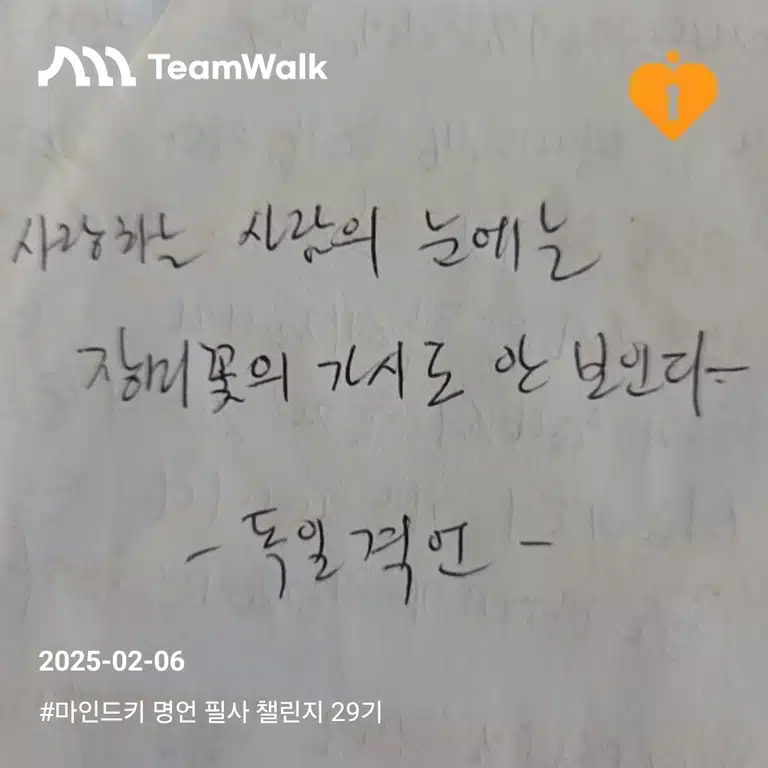 TeamWalk
사랑하는 사람의 눈에는
장미꽃의 가시도 안 보인다
- 독일 격언 -
2025-02-06
#마인드키 명언 필사 챌린지 29기